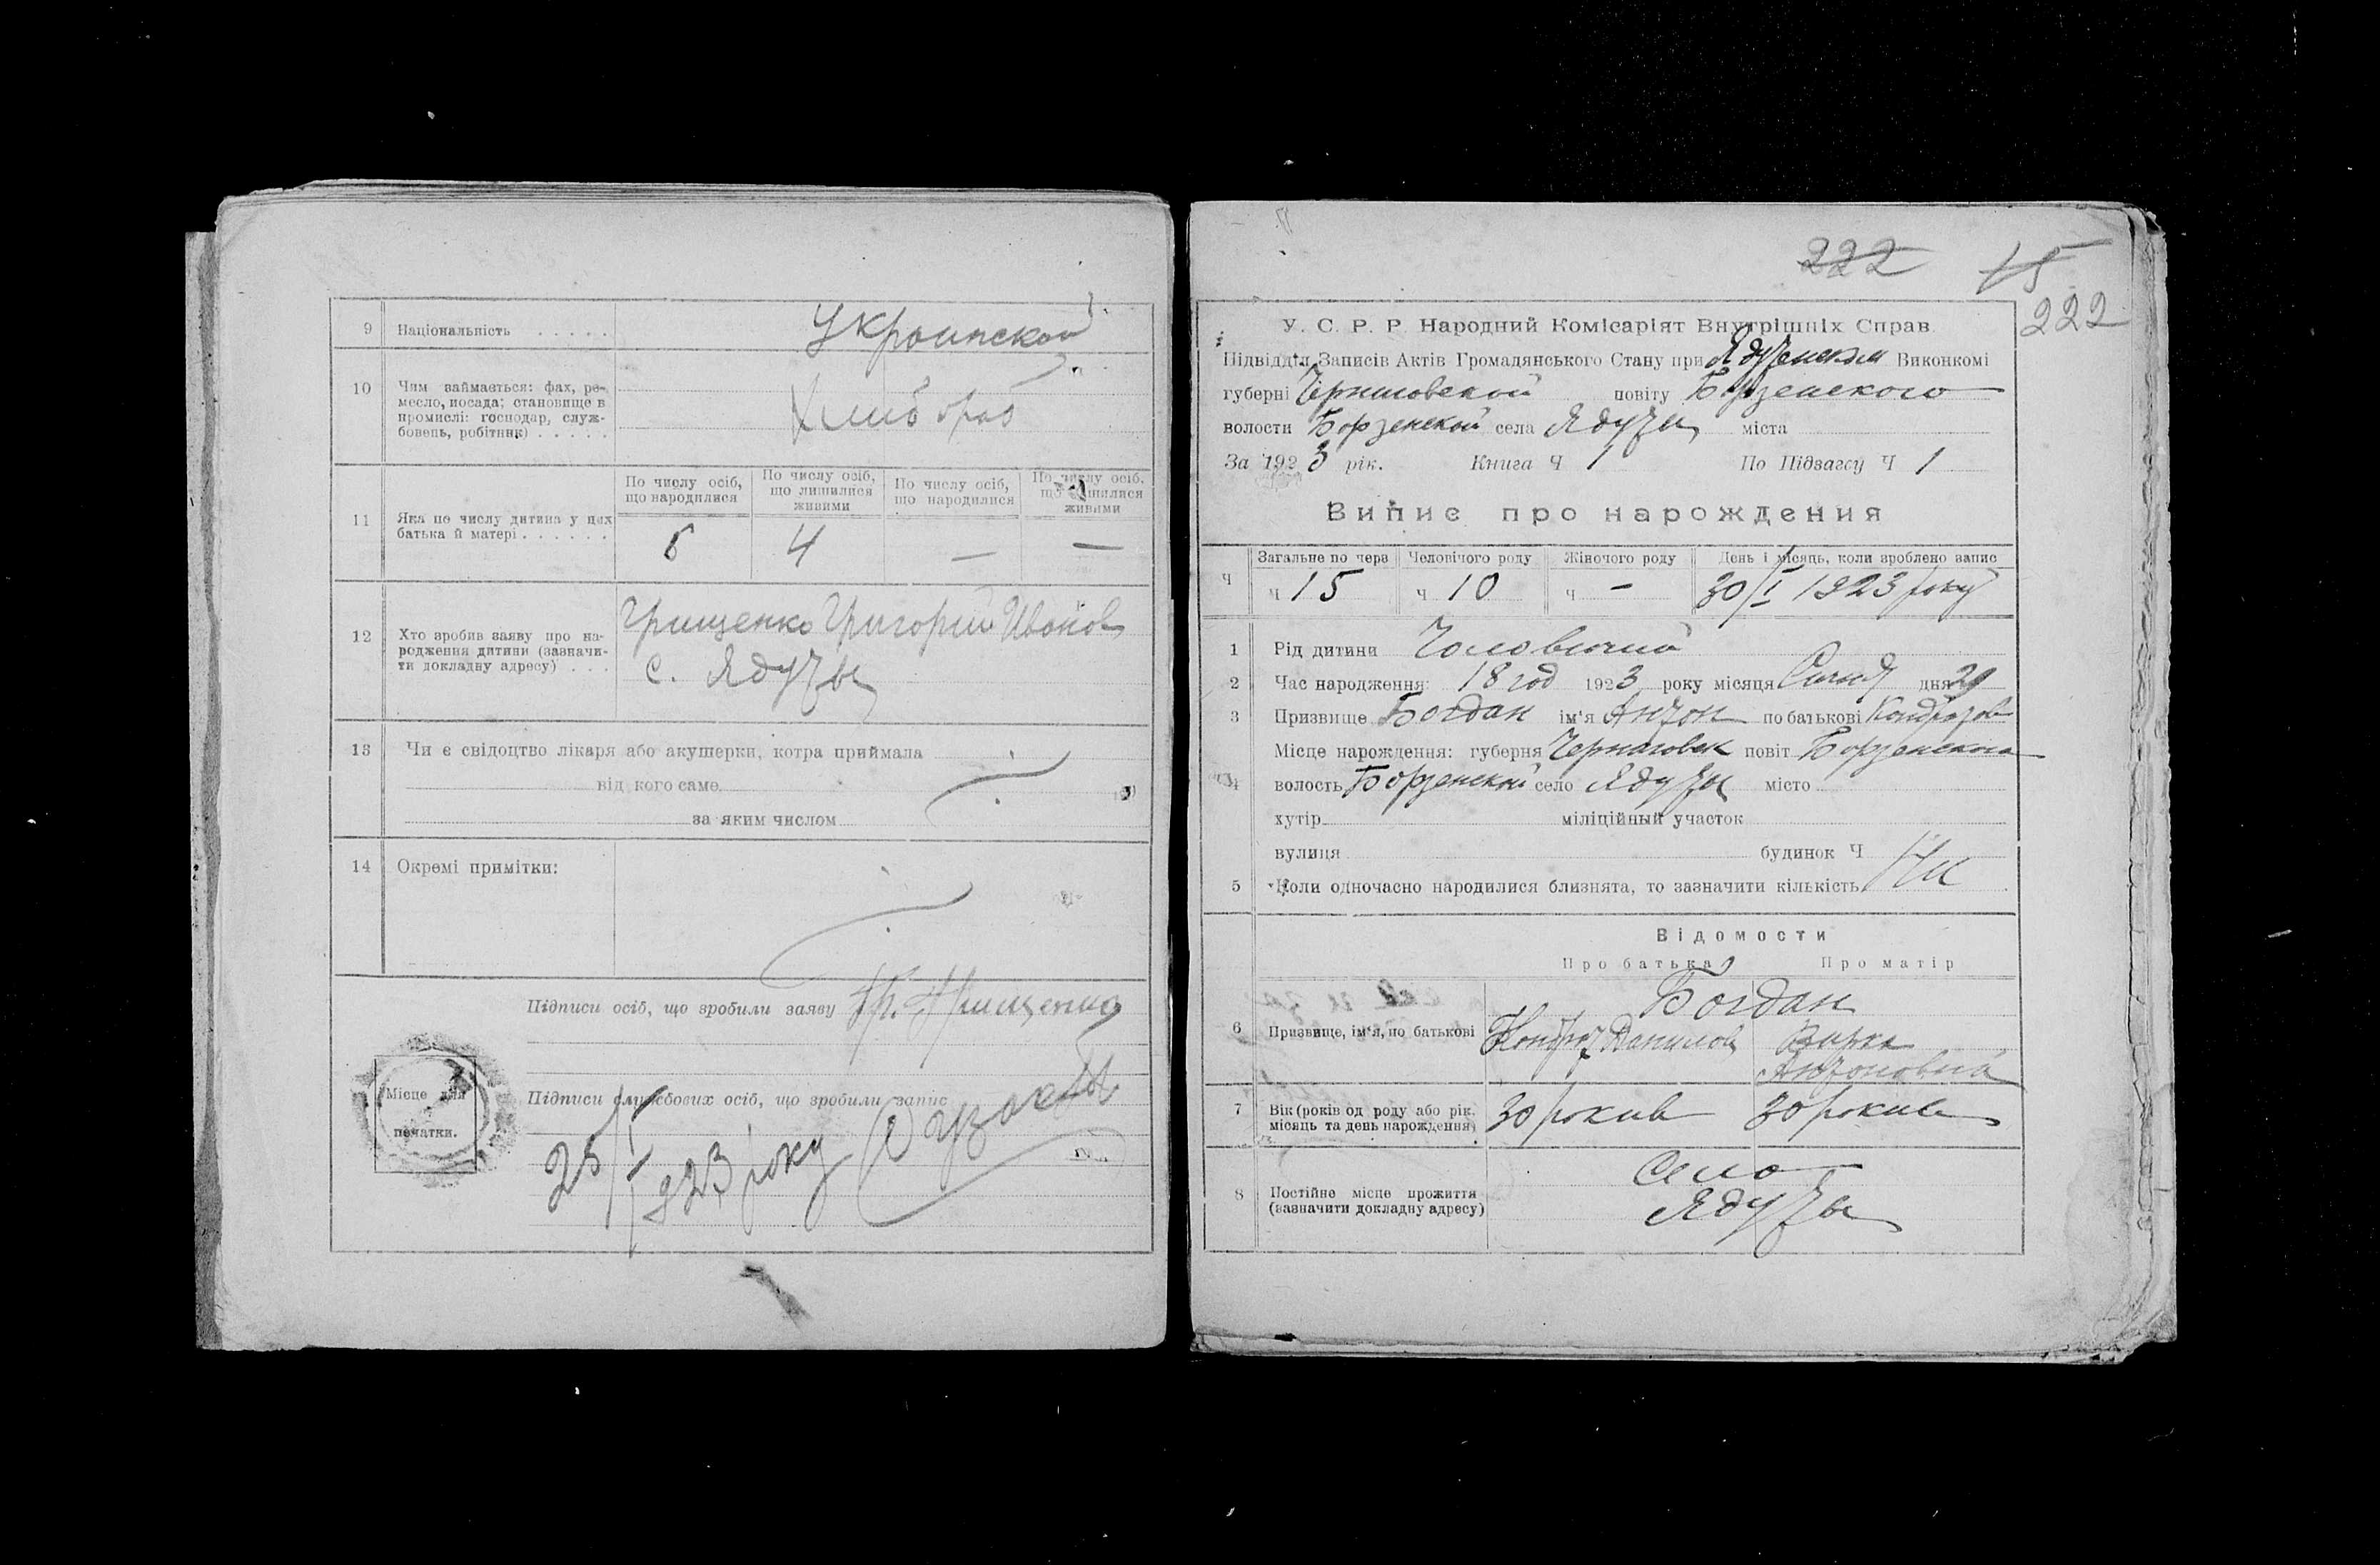 9 Національність . . . . . Украинской
10 Чим займається: фах, ре-
месло, посада; становище в
промислі: господар, служ-
бовець, робітник) . . . . .
Хлибороб
По числу осіб, що народилися
По числу осіб, що лишилися живими
По числу осіб, що народилися
По числу осіб, що лишилися живими
11 Яка по числу дитина у цих
батька й матері . . . . . .
4 — —
12 Хто зробив заяву про на-
родження дитини (зазначи-
ти докладну адресу) . . .
Грищенко Григорий Иванов
с. Ядуты
13 Чи є свідоцтво лікаря або акушерки, котра приймала
від кого саме
за яким числом
14 Окремі примітки:
Підписи осіб, що зробили заяву Гр. Грищенко
Підписи службових осіб, що зробили запис
Місце для
печатки.
1923 року
222 15
222
У. С. Р. Р. Народний Комісаріят Внутрішніх Справ
Підвідділ Записів Актів Громадянського Стану при Ядутенском Виконкомі
губерні Черниговской повіту Борзенского
волости Борзенской села Ядуты міста
За 1923 рік. Книга Ч 1 По Підзагсу Ч 1
Випис про нарождения
Загальне по черв Человічого роду Жіночого роду День і місяць, коли зроблено запис
Ч ч 15 ч 10 ч — 30/I 1923 року
1 Рід дитини Чоловичий
2 Час народження: 18 год 1923 року місяця дня 29
3 Призвище Богдан ім'я Антон по батькові Кондратов
Місце нарождення: губерня Черниговск повіт Борзенского
4 волость Борзенской село Ядуты місто
хутір міліційный участок
вулиця будинок Ч
5 Коли одночасно народилися близнята, то зазначити кількість
Відомости
Про батька Про матір
Богдан
6 Призвище, ім'я, по батькові Кондрат Данилов
Антоновна
7 Вік (років од роду або рік,
місяць та день нарождення)
30 рокив 30 рокив
8 Постійне місце прожиття
(зазначити докладну адресу)
Село
Ядуты